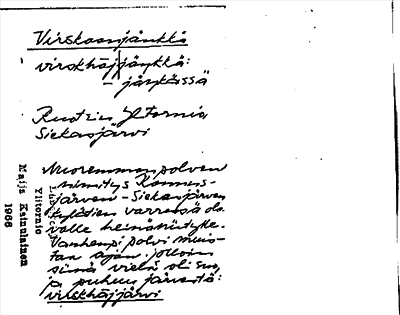 Virskaanjänkkä
virskhäjjänkkä:
– jänkässä
Ruotsin Ylitornio,
Siekasjärvi
Nuoremman polven
nimitys Kannus-
järven - Siekasjärven
kylätien varressa ole-
valle heinäniitylle.
Vanhempi polvi muis-
taa ajan, jolloin
siinä vielä oli suo,
ja puhuu järvestä:
virskhäjjärvi
Ylitornio
Maija Kainulainen
1966